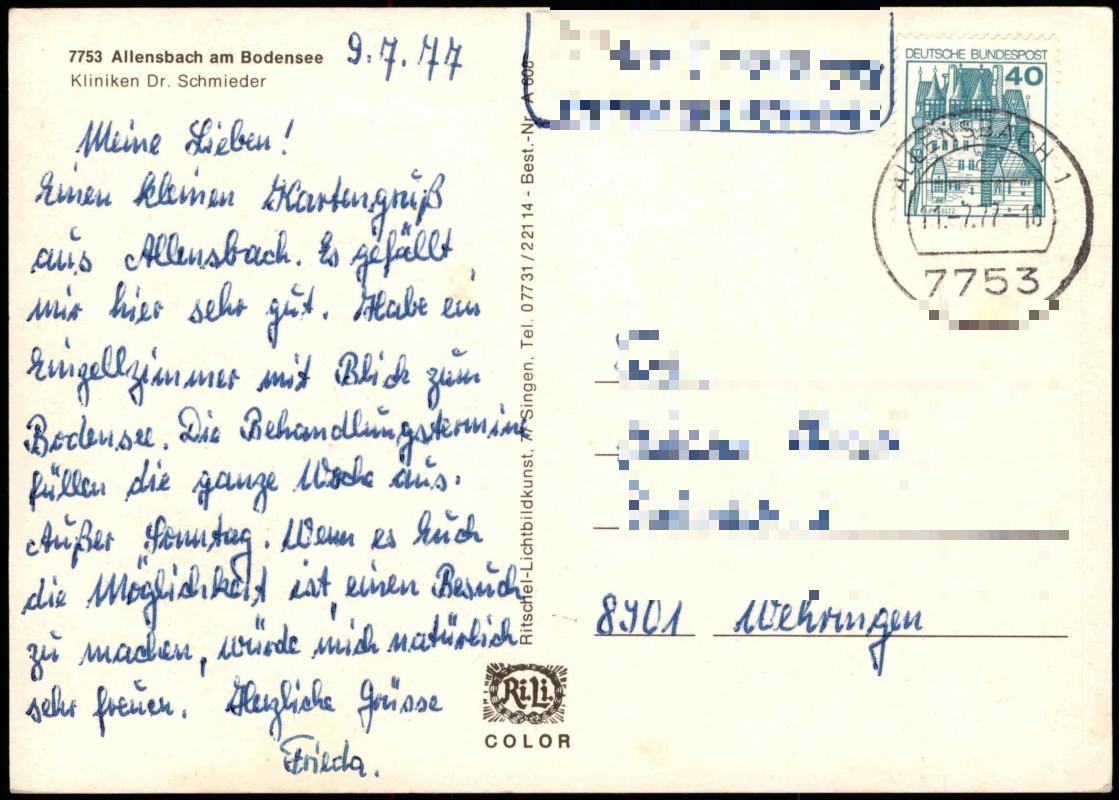 7753 Allensbach am Bodensee
Kliniken Dr. Schmieder
9.7.77
Meine Lieben!
Einen kleinen Kartengruß
aus Allensbach. Es gefällt
mir hier sehr gut. Habe ein
Einzellzimmer mit Blick zum
Bodensee. Die Behandlungstermine
füllen die ganze Woche aus.
Außer Sonntag. Wenn es Euch
die Möglichkeit ist einen Besuch
zu machen, würde mich natürlich
sehr freuen. Herzliche Grüsse
Frieda.
Ritschel-Lichtbildkunst, 77 Singen, Tel. 07731/22114 - Best.-Nr. A 606
Ri.Li.
COLOR
DEUTSCHE BUNDESPOST
40
ALLENSBACH 1
7.77-18
7753
8901 Wehringen